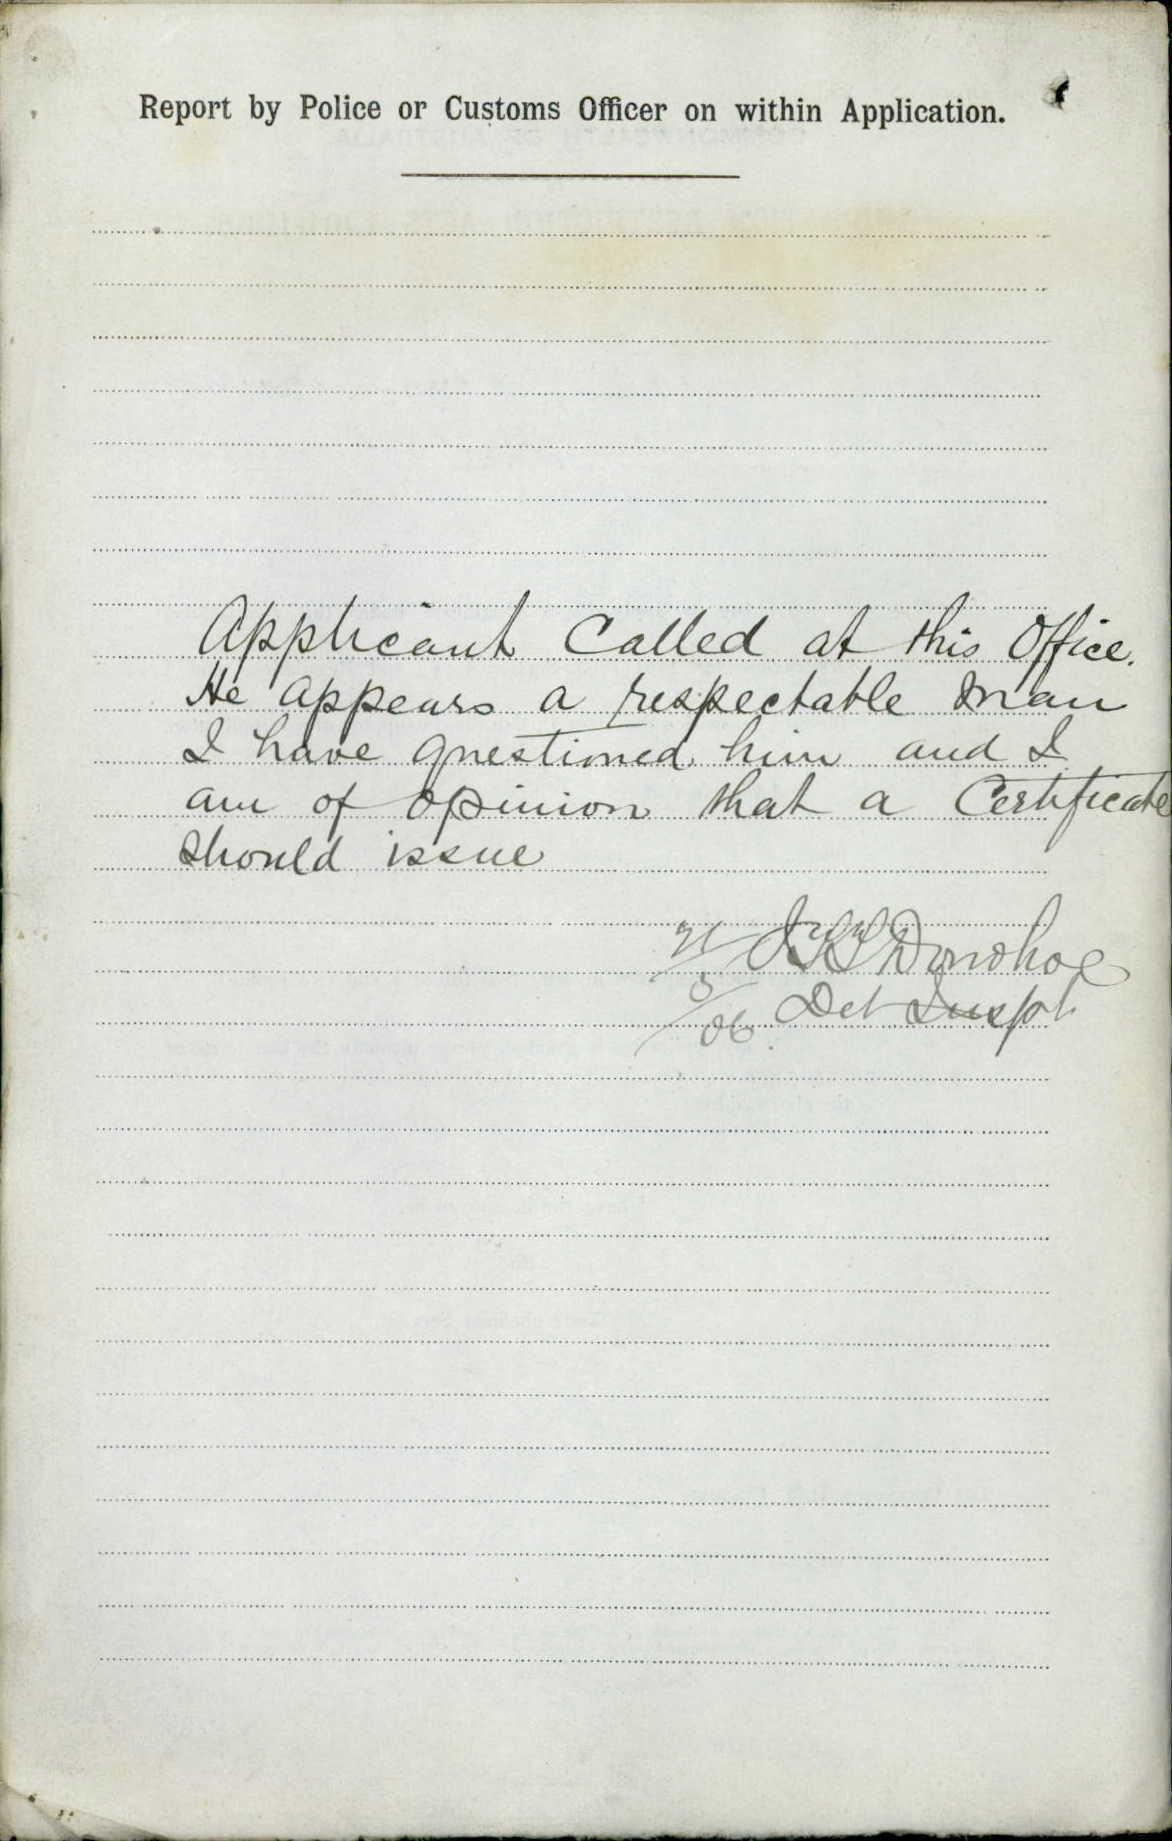 Report by Police or Customs Officer on within Application.
Applicant Called at this Office.
He appears a respectable man
I have questioned him and I
am of opinion that a Certificate
should issue
Donohoe
Det Inspr
06